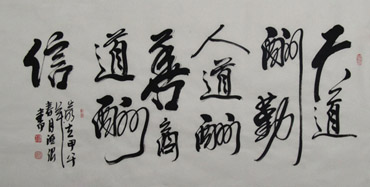 天道
酬勤
人道酬
善商
道酬
信
歲在甲午